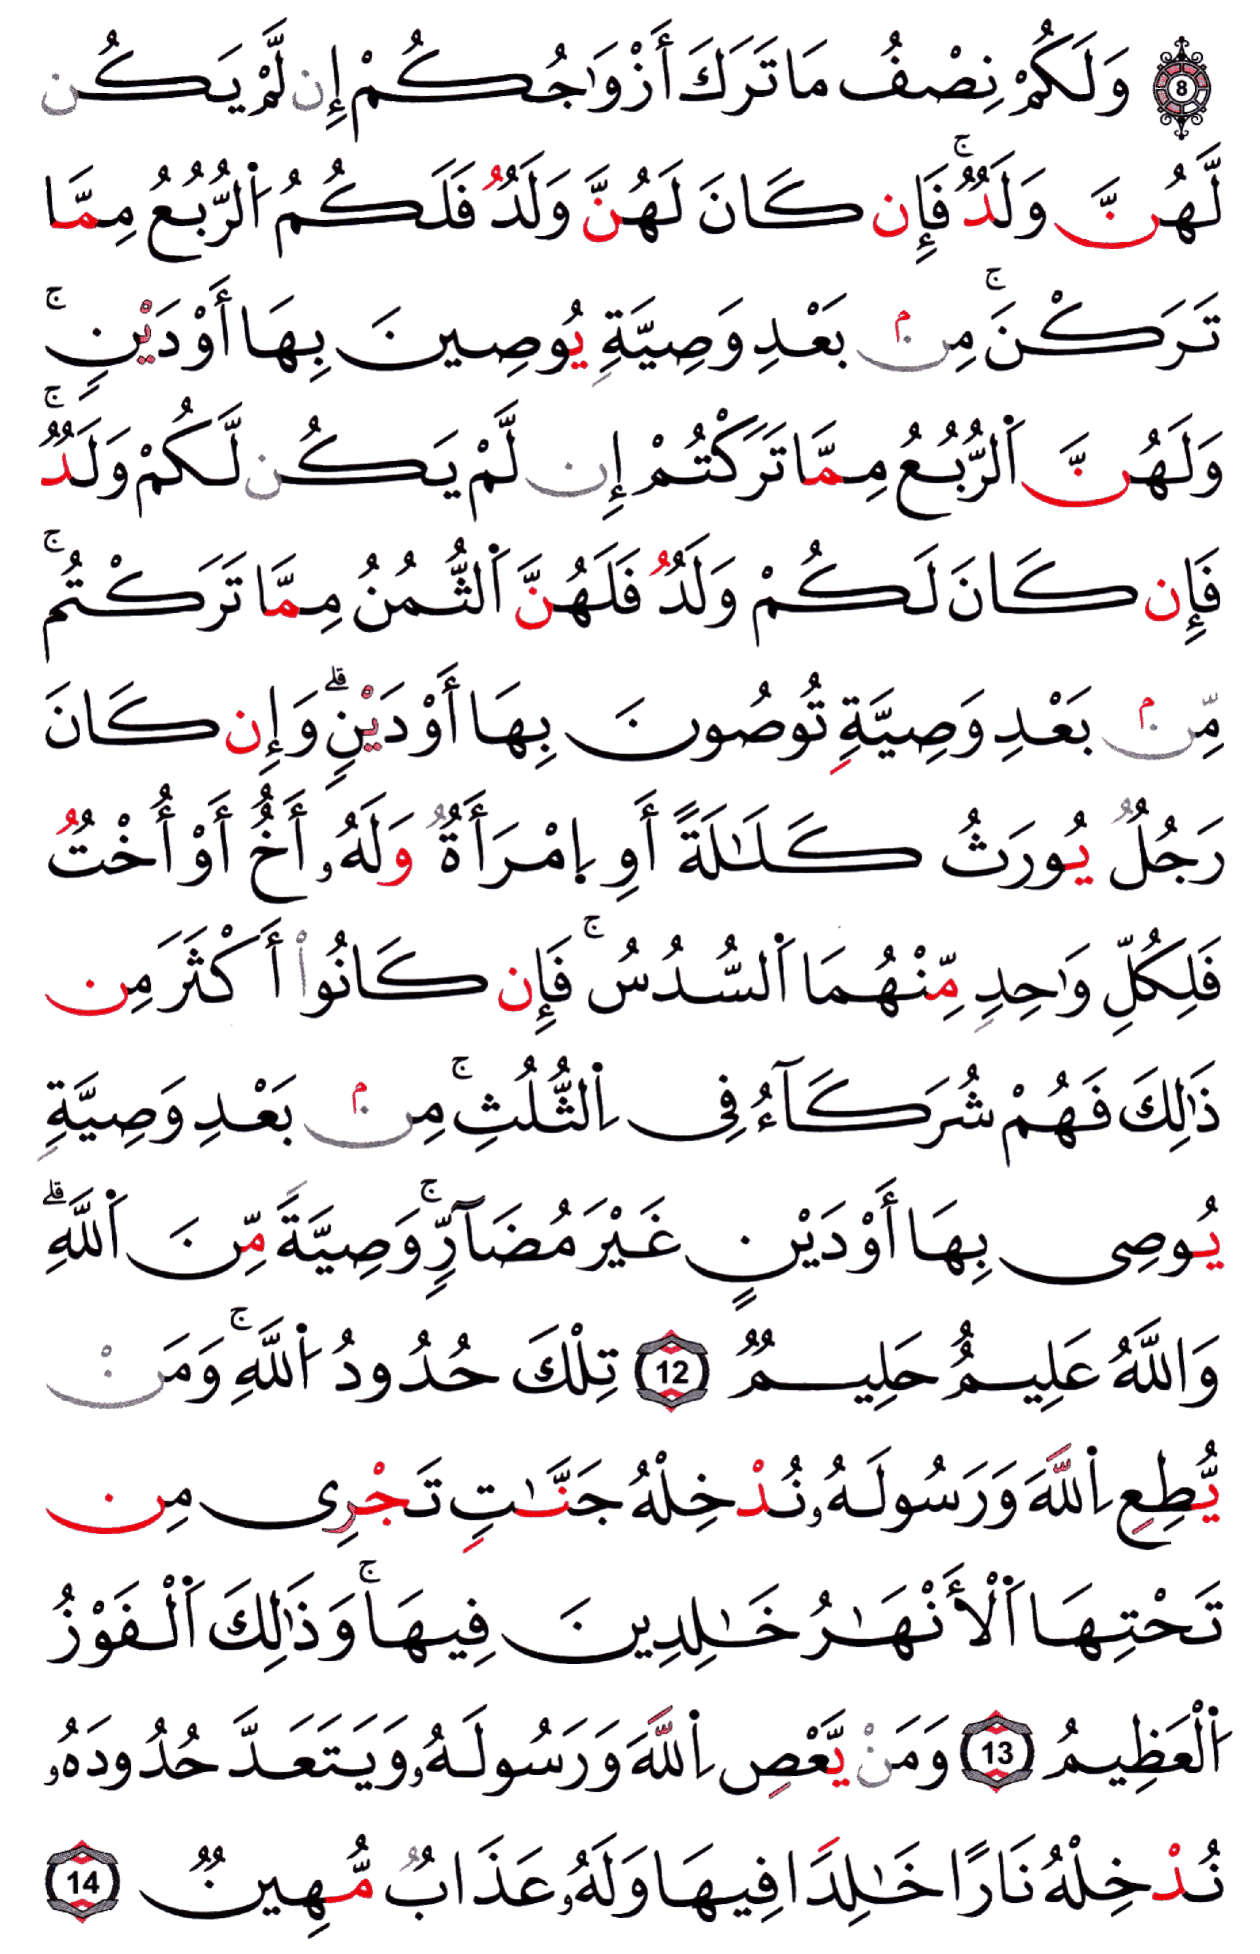 8 وَلَكُمْ نِصْفُ مَا تَرَكَ أَزْوَٰجُكُمْ إِن لَّمْ يَكُن
لَّهُنَّ وَلَدٌۚ فَإِن كَانَ لَهُنَّ وَلَدٌ فَلَكُمُ اُ۬لرُّبُعُ مِمَّا
تَرَكْنَۚ مِنۢ بَعْدِ وَصِيَّةٍ يُوصِينَ بِهَا أَوْ دَيْنٍۚ
وَلَهُنَّ اَ۬لرُّبُعُ مِمَّا تَرَكْتُمْ إِن لَّمْ يَكُن لَّكُمْ وَلَدٌۚ
فَإِن كَانَ لَكُمْ وَلَدٌ فَلَهُنَّ اَ۬لثُّمُنُ مِمَّا تَرَكْتُمۚ
مِّنۢ بَعْدِ وَصِيَّةٍ تُوصُونَ بِهَا أَوْ دَيْنٍۗ وَإِن كَانَ
رَجُلٌ يُورَثُ كَلَٰلَةً أَوِ اِ۪مْرَأَةٌ وَلَهُۥ أَخٌ أَوْ أُخْتٌ
فَلِكُلِّ وَٰحِدٍ مِّنْهُمَا اَ۬لسُّدُسُۚ فَإِن كَانُوا۟ أَكْثَرَ مِن
ذَٰلِكَ فَهُمْ شُرَكَآءُ فِى اِ۬لثُّلُثِۚ مِنۢ بَعْدِ وَصِيَّةٍ
يُوصِى بِهَا أَوْ دَيْنٍ غَيْرَ مُضَآرٍّۚ وَصِيَّةً مِّنَ اَ۬للَّهِۗ
وَاللَّهُ عَلِيمٌ حَلِيمٌ 12 تِلْكَ حُدُودُ اُ۬للَّهِۚ وَمَنْ
يُّطِعِ اِ۬للَّهَ وَرَسُولَهُۥ نُدْخِلْهُ جَنَّٰتٍ تَجْرِى مِن
تَحْتِهَا اَ۬لْأَنْهَٰرُ خَٰلِدِينَ فِيهَاۚ وَذَٰلِكَ اَ۬لْفَوْزُ
اُ۬لْعَظِيمُ 13 وَمَنْ يَّعْصِ اِ۬للَّهَ وَرَسُولَهُۥ وَيَتَعَدَّ حُدُودَهُۥ
نُدْخِلْهُ نَارًا خَٰلِدًا فِيهَا وَلَهُۥ عَذَابٌ مُّهِينٌ 14